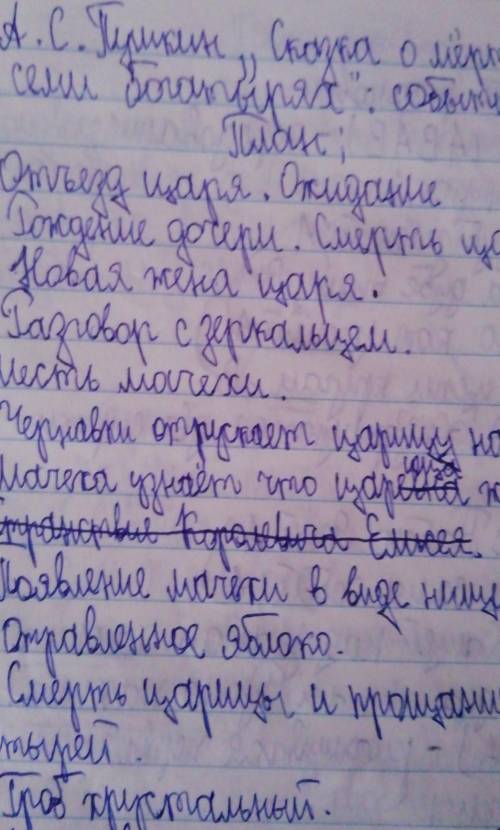 А. С. Пушкин „Сказка о мёрт
семи богатырях": событи
План;
Отъезд царя. Ожидание
Рождение дочери. Смерть ца
Новая жена царя.
Разговор с зеркальцем.
месть мачехи.
Чернавки отпускает царицу на
Мачеха узнаёт что царевна ж
странствие Королевича Елисея.
Появление мачехи в виде нище
Отравленное яблоко.
Смерть царицы и прощани
тырей.
Гроб хрустальный.